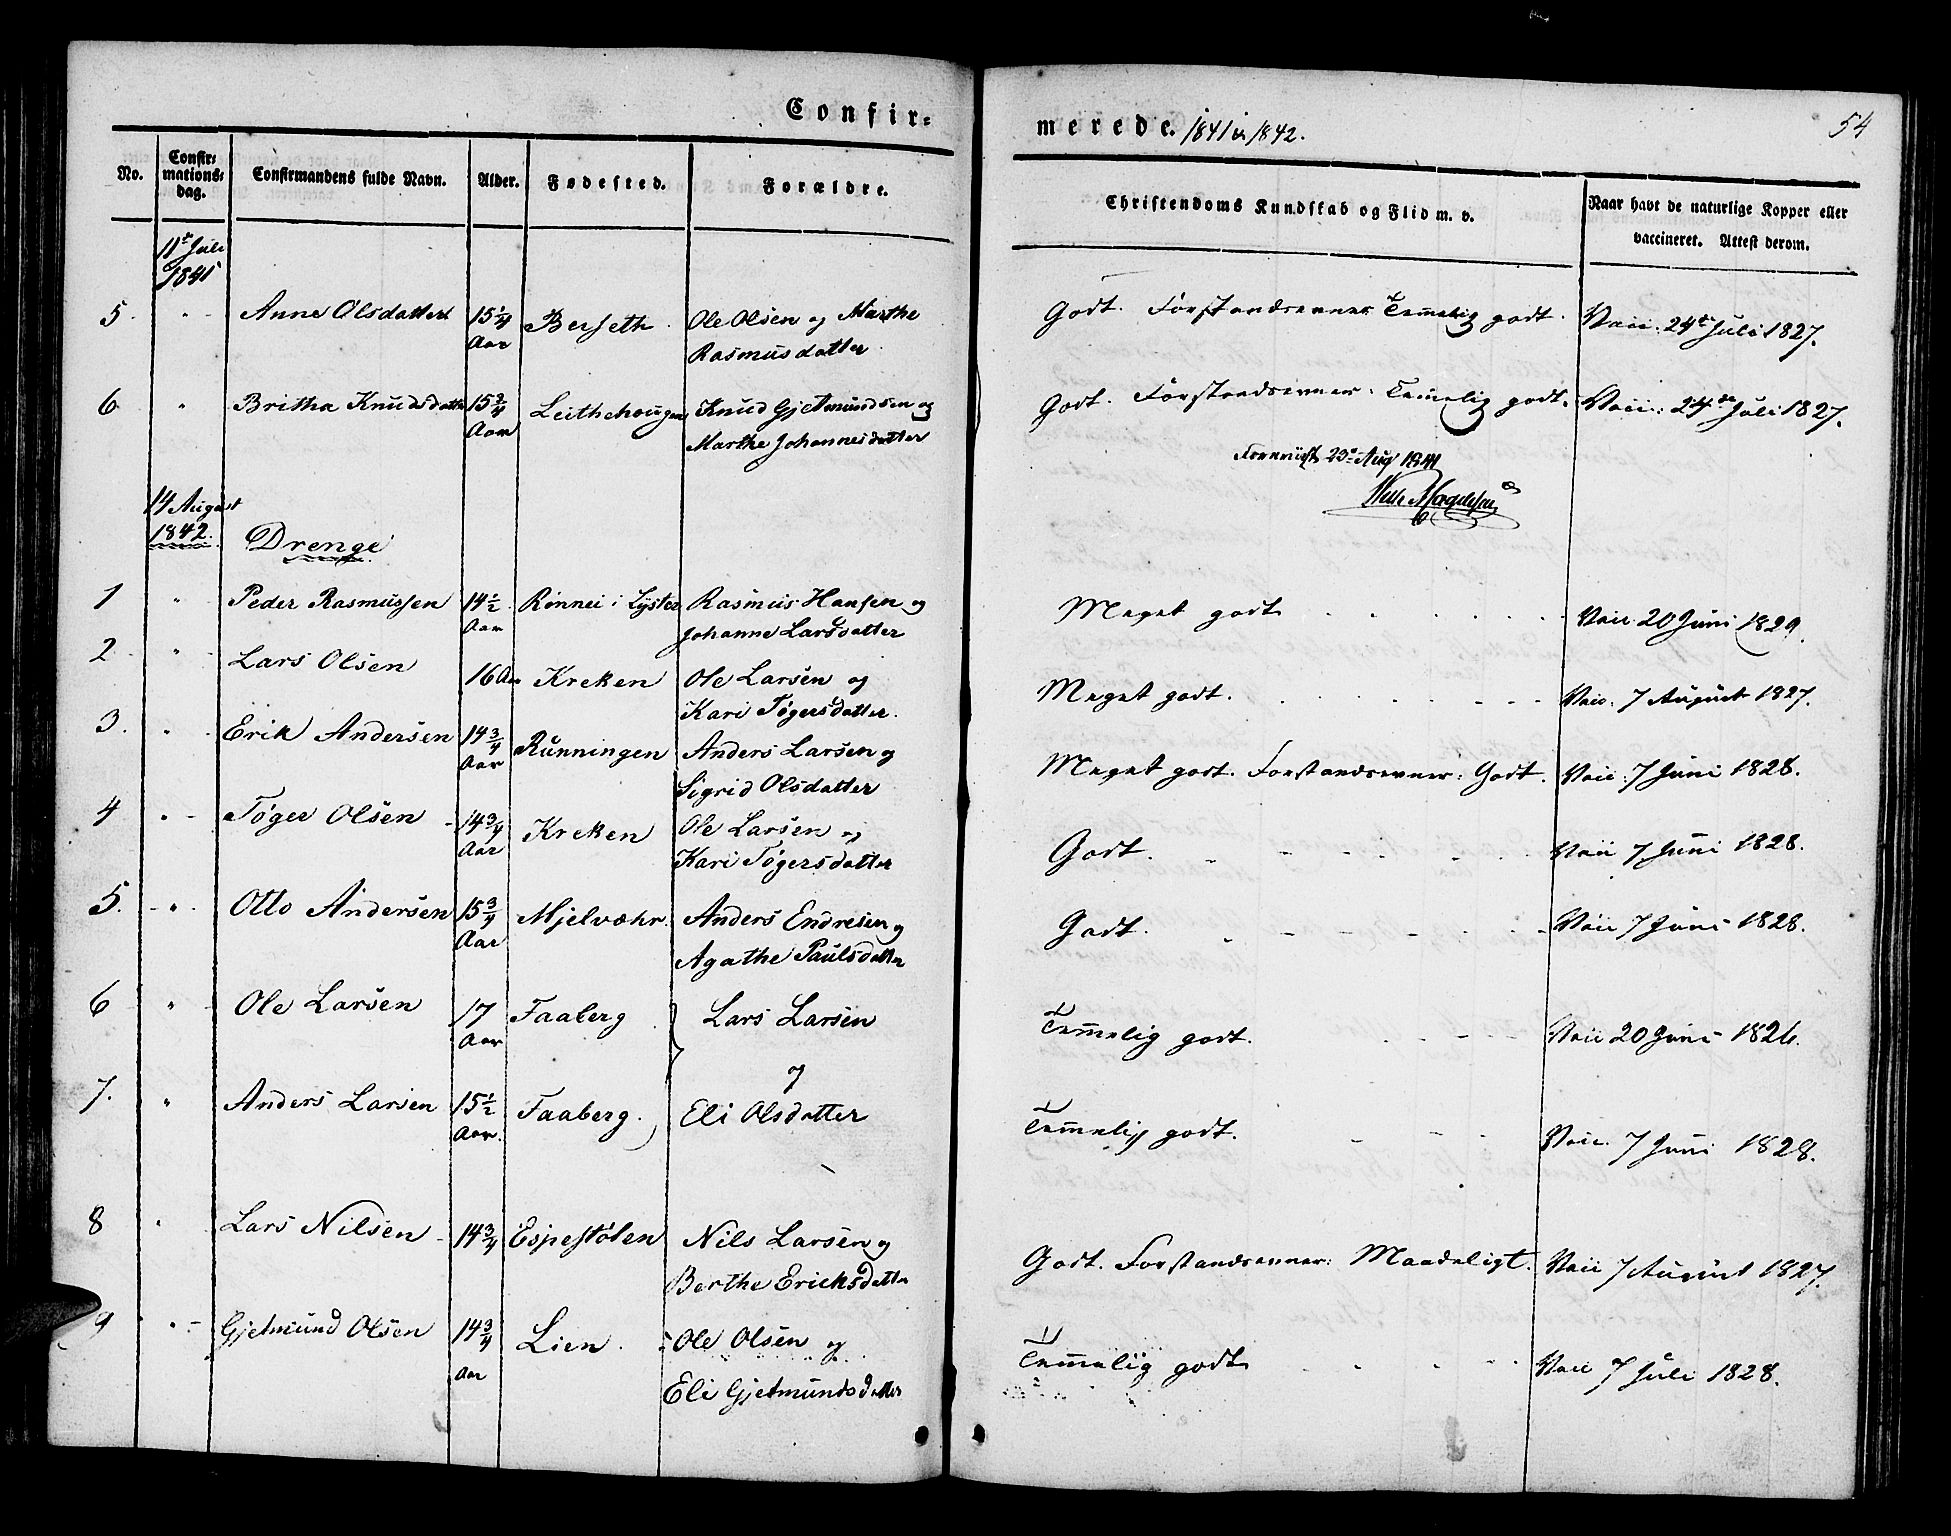 Confir-
merede. 1841 & 1842.
54
No.
Confir-
mations-
dag.
Confirmandens fulde Navn.
Alder.
Fødested.
Forældre.
Christendoms Kundskab og Flid m. v.
Naar havt de naturlige Kopper eller
vaccineret. Attest derom.
11te Juli
1841
5 " Anne Olsdatter 15 1/4 Aar Berseth Ole Olsen og Marthe Godt. Forstandsevner Temmelig godt. Vacc: 24de Juli 1827.
Rasmusdatter
6 " Britha Knudsdatter 15 3/4 Aar Leithehougen Knud Gjetmundsen og Godt. Forstandsevner: Temmelig godt. Vacc: 24de Juli 1827.
Marthe Johannesdatter
23de Aug 1841
14 August
1842.
Drenge
1 " Peder Rasmussen 14 1/2 Aar Rønnei i Lyster Rasmus Hansen og Meget godt Vacc 20 Juni 1829.
Johanne Larsdatter
2 " Lars Olsen 16 Aar Kreken Ole Larsen og Meget godt. Vacc: 7 August 1827.
Kari Tøgersdatter.
3. " Erik Andersen 14 3/4 Aar Rünningen Anders Larsen og Meget godt. Forstandsevner: Godt. Vacc: 7 Juni 1828.
Sigrid Olsdatter
4 " Tøger Olsen 14 3/4 Aar Kreken Ole Larsen og Godt. Vacc 7 Juni 1828.
Kari Tøgersdatter
5. " Otto Andersen 15 3/4 Aar Mjelvæhr. Anders Endresen og Godt. Vacc 7 Juni 1828.
Agathe Paulsdatter
6 " Ole Larsen 17 Aar Faaberg } Lars Larsen Temmelig godt. Vacc 20 Juni 1826.
og
7. " Anders Larsen 15 1/2 Aar. Faaberg. Eli Olsdatter Temmelig godt. Vacc. 7 Juni 1828.
8 " Lars Nilsen 14 3/4 Espestølen Nils Larsen og Godt. Forstandsevner: Maadeligt. Vacc 7 August 1827.
Berthe Ericksdatter
9 " Gjetmund Olsen 14 3/4 Aar Lien. Ole Olsen og Temmelig godt Vacc 7 Juli 1828.
Eli Gjetmundsdatter